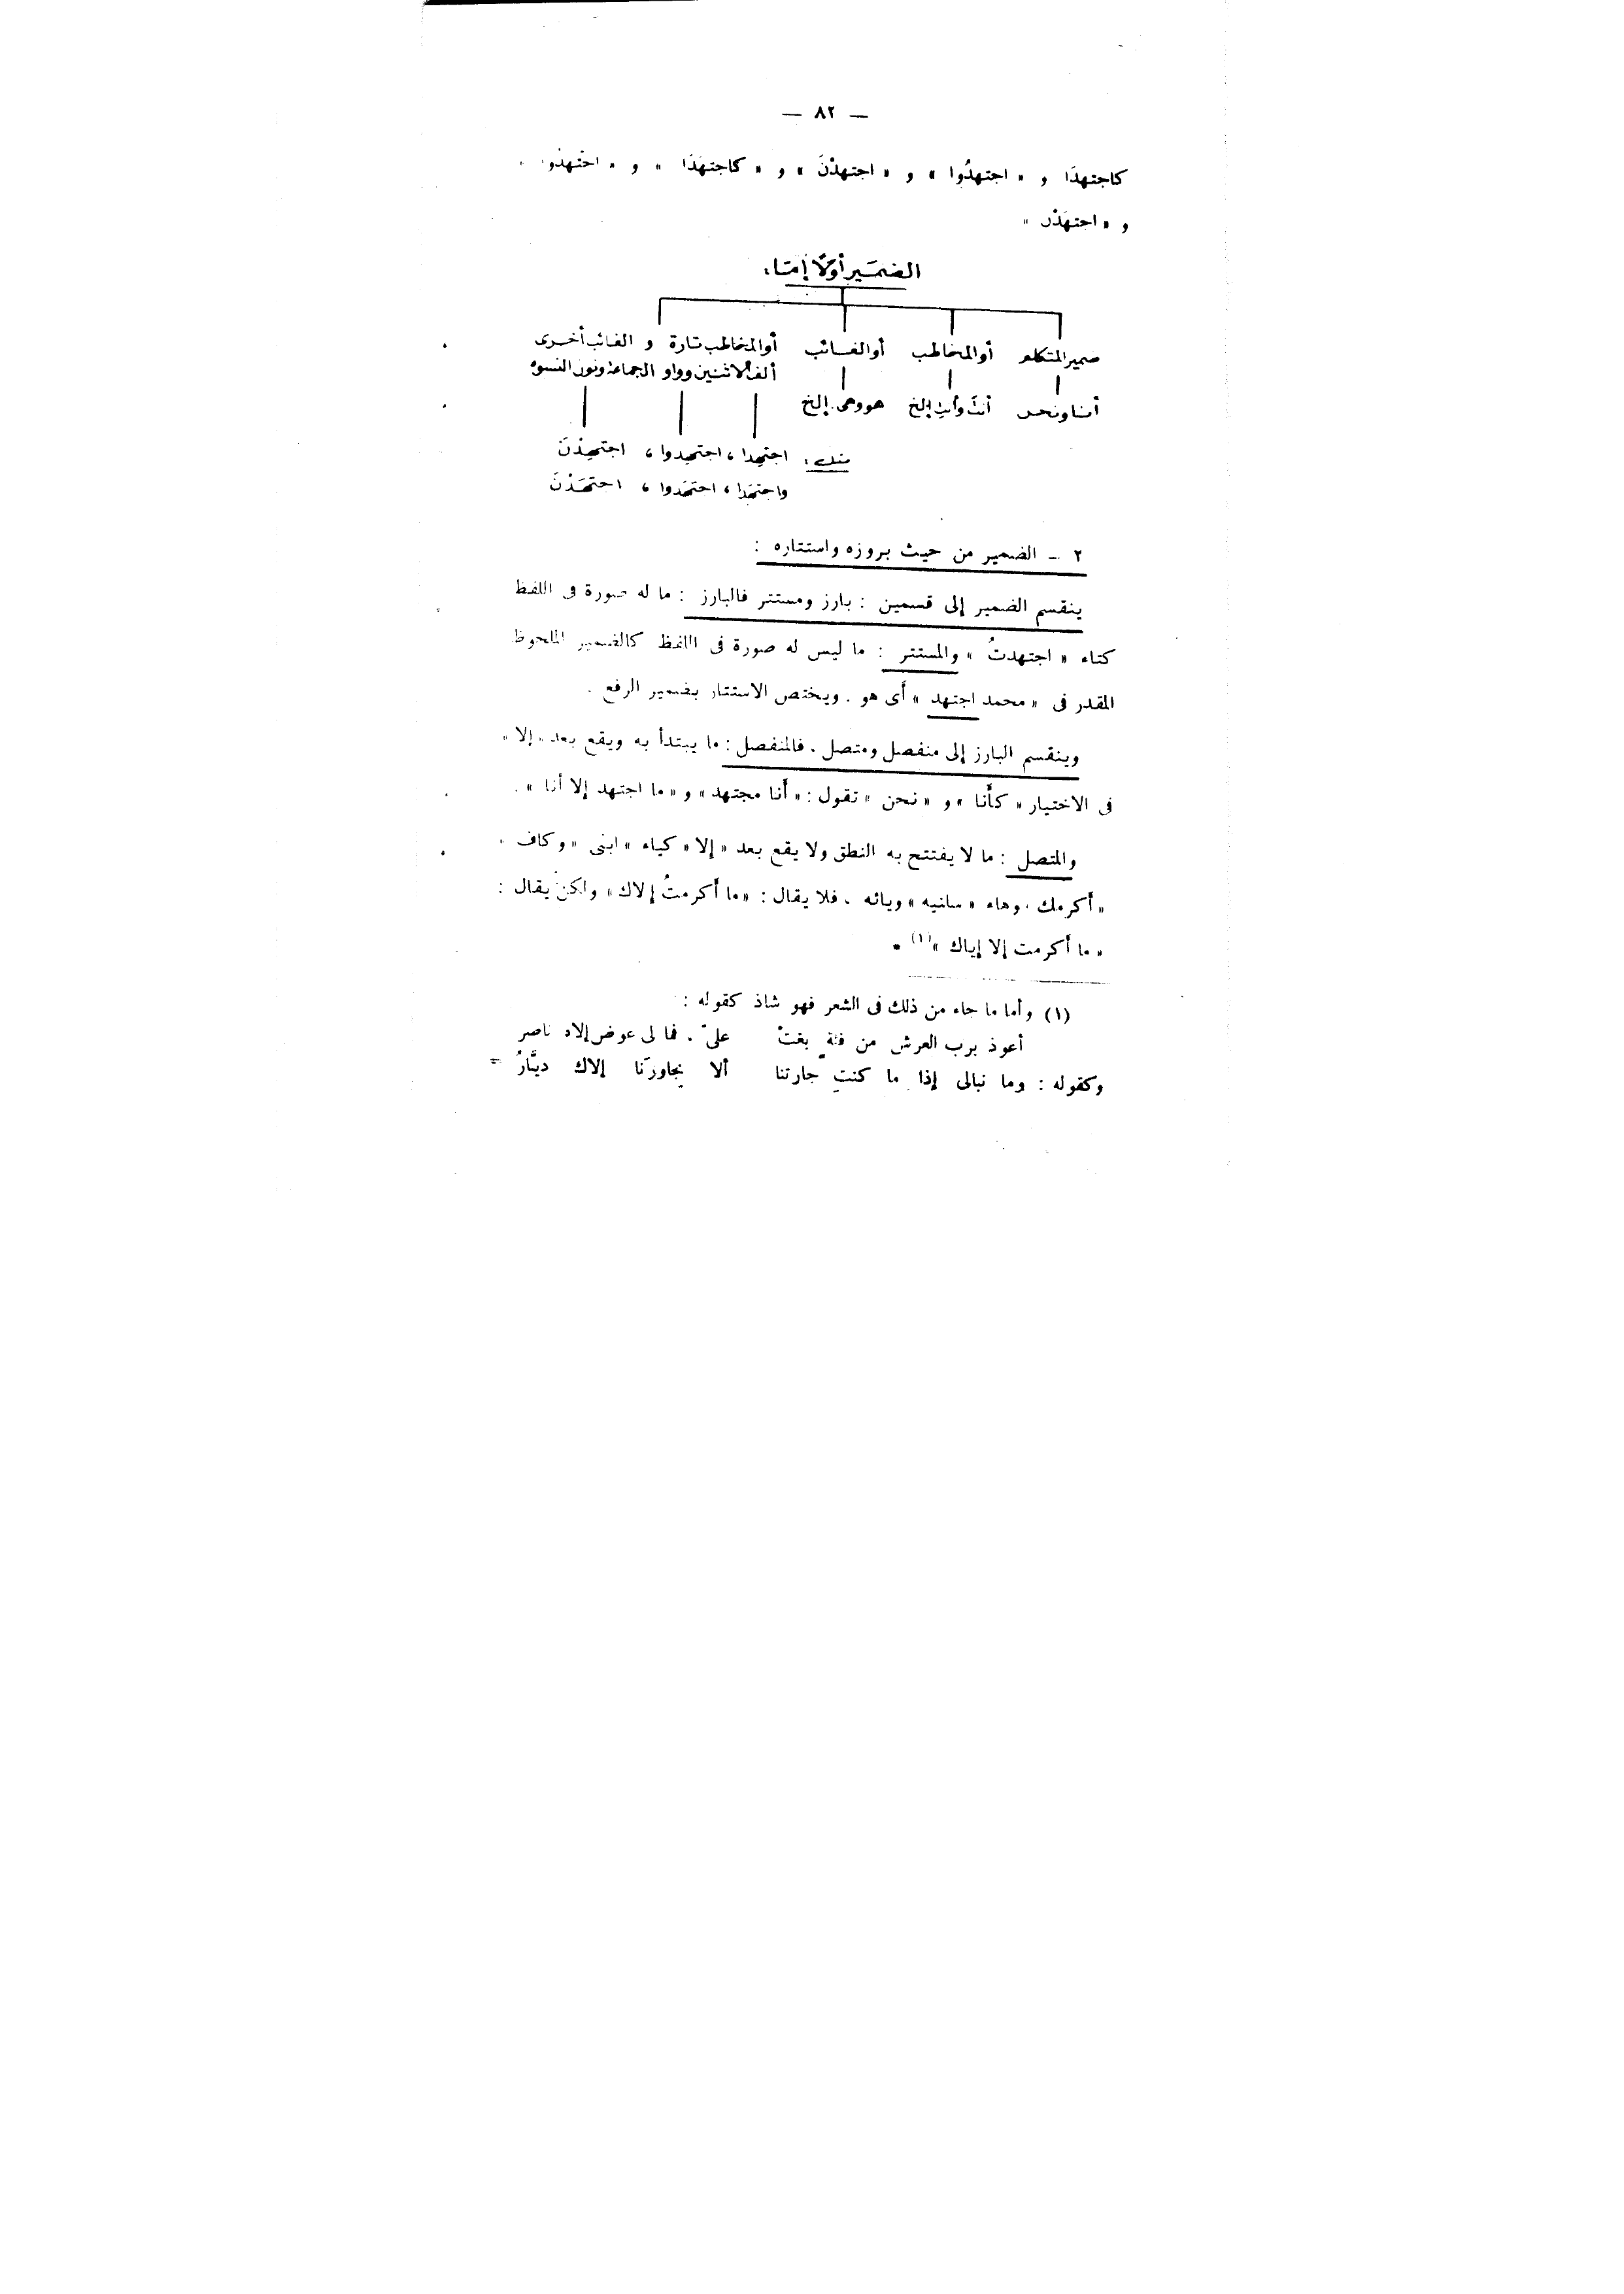 — ٨٢ —
كاجتهدَا و « اجتهدُوا » و « اجتهدْنَ » و « كاجتهَدَا » و « اجتهدُو
و « اجتهَدْن »
الضمير أولاً إما :
ضمير المتكلم أو المخاطب أو الغائب أو المخاطب تارة و الغائب أخرى
ألف الاثنين وواو الجماعة ونون النسوة
أنا ونحن أنتَ وأنتِ إلخ هو وهى إلخ
مثل : اجتهِدا ، اجتهِدوا ، اجتهِدْنَ
واجتهَدا ، اجتهَدوا ، اجتهَدْنَ
٢ – الضمير من حيث بروزه واستتاره :
ينقسم الضمير إلى قسمين : بارز ومستتر فالبارز : ما له صورة فى اللفظ
كتاء « اجتهدتُ » والمستتر : ما ليس له صورة فى اللفظ كالضمير الملحوظ
المقدر فى « محمد اجتهد » أى هو . ويختص الاستتار بضمير الرفع .
وينقسم البارز إلى منفصل ومتصل . فالمنفصل : ما يبتدأ به ويقع بعد « إلا »
فى الاختيار « كأنا » و « نحن » تقول : « أنا مجتهد » و « ما اجتهد إلا أنا » .
والمتصل : ما لا يفتتح به النطق ولا يقع بعد « إلا » كياء « ابنى » وكاف
« أكرمك ، وهاء « سلنيه » ويائه . فلا يقال : « ما أكرمتُ إلاك » ولكن يقال :
« ما أكرمت إلا إياك »(١) .
(١) وأما ما جاء من ذلك فى الشعر فهو شاذ كقوله :
أعوذ برب العرش من فئة بغتْ علىّ . فما لى عوض إلاه ناصر
وكقوله : وما نبالى إذا ما كنتِ جارتنا ألا يجاورَنا إلاك ديَّارُ =